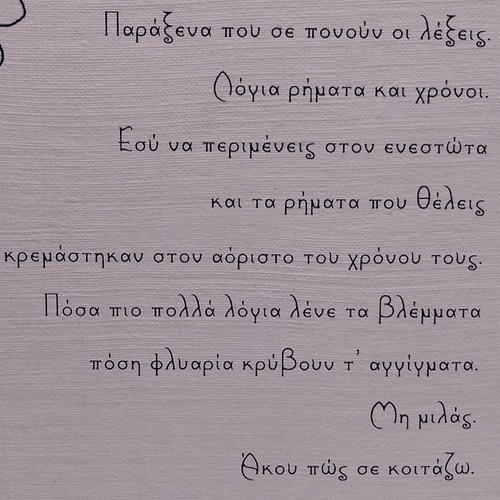 Παράξενα που σε πονούν οι λέξεις.
Λόγια ρήματα και χρόνοι.
Εσύ να περιμένεις στον ενεστώτα
και τα ρήματα που θέλεις
κρεμάστηκαν στον αόριστο του χρόνου τους.
Πόσα πιο πολλά λόγια λένε τα βλέμματα
πόση φλυαρία κρύβουν τ' αγγίγματα.
Μη μιλάς.
Άκου πώς σε κοιτάζω.